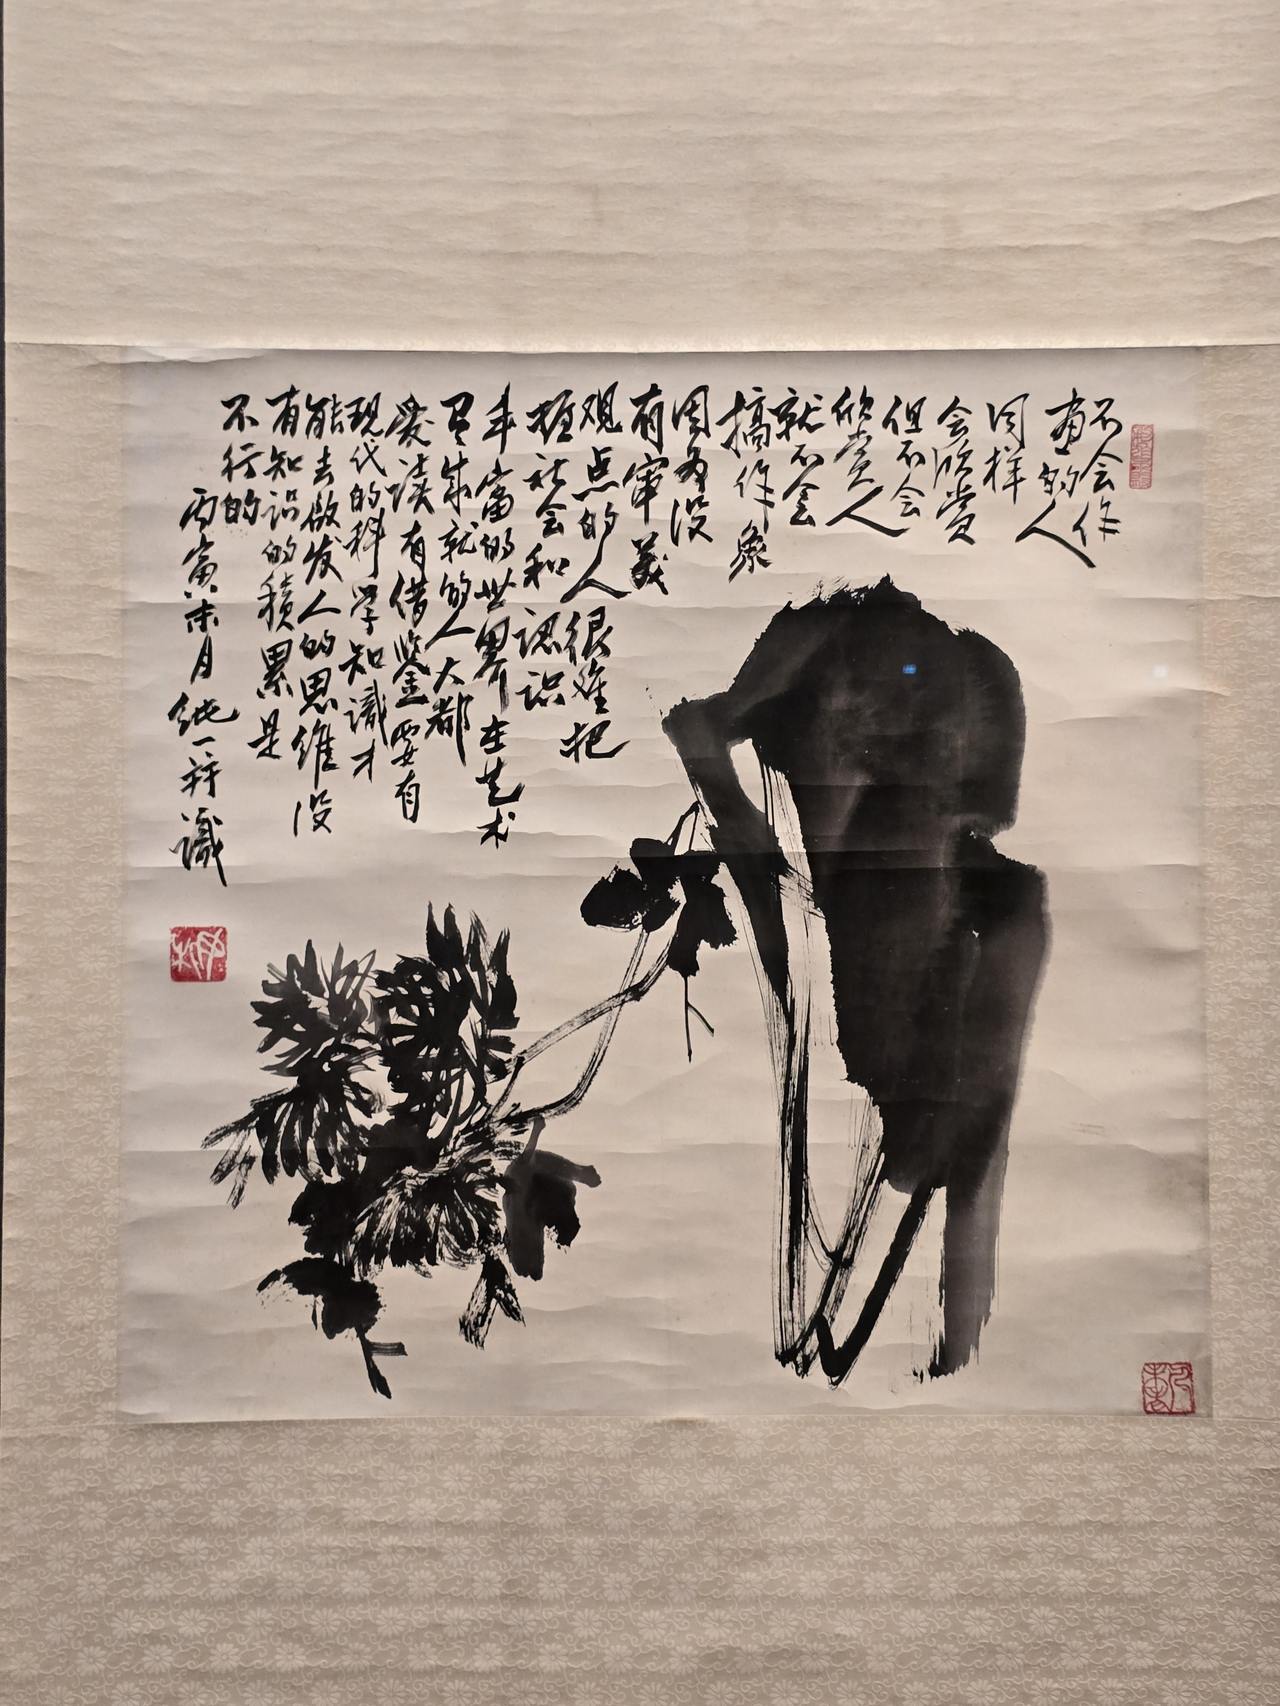 不会作
画的人
同样
会欣赏
但不会
欣赏人
就不会
搞作
因为没
有审美
观点的人很难把
握社会和认识
丰富的世界在艺术
有成就的人大都
爱读有借鉴要有
现代的科学知识才
能去启发人的思维没
有知识的积累是
不行的
丙寅末月纯一并识